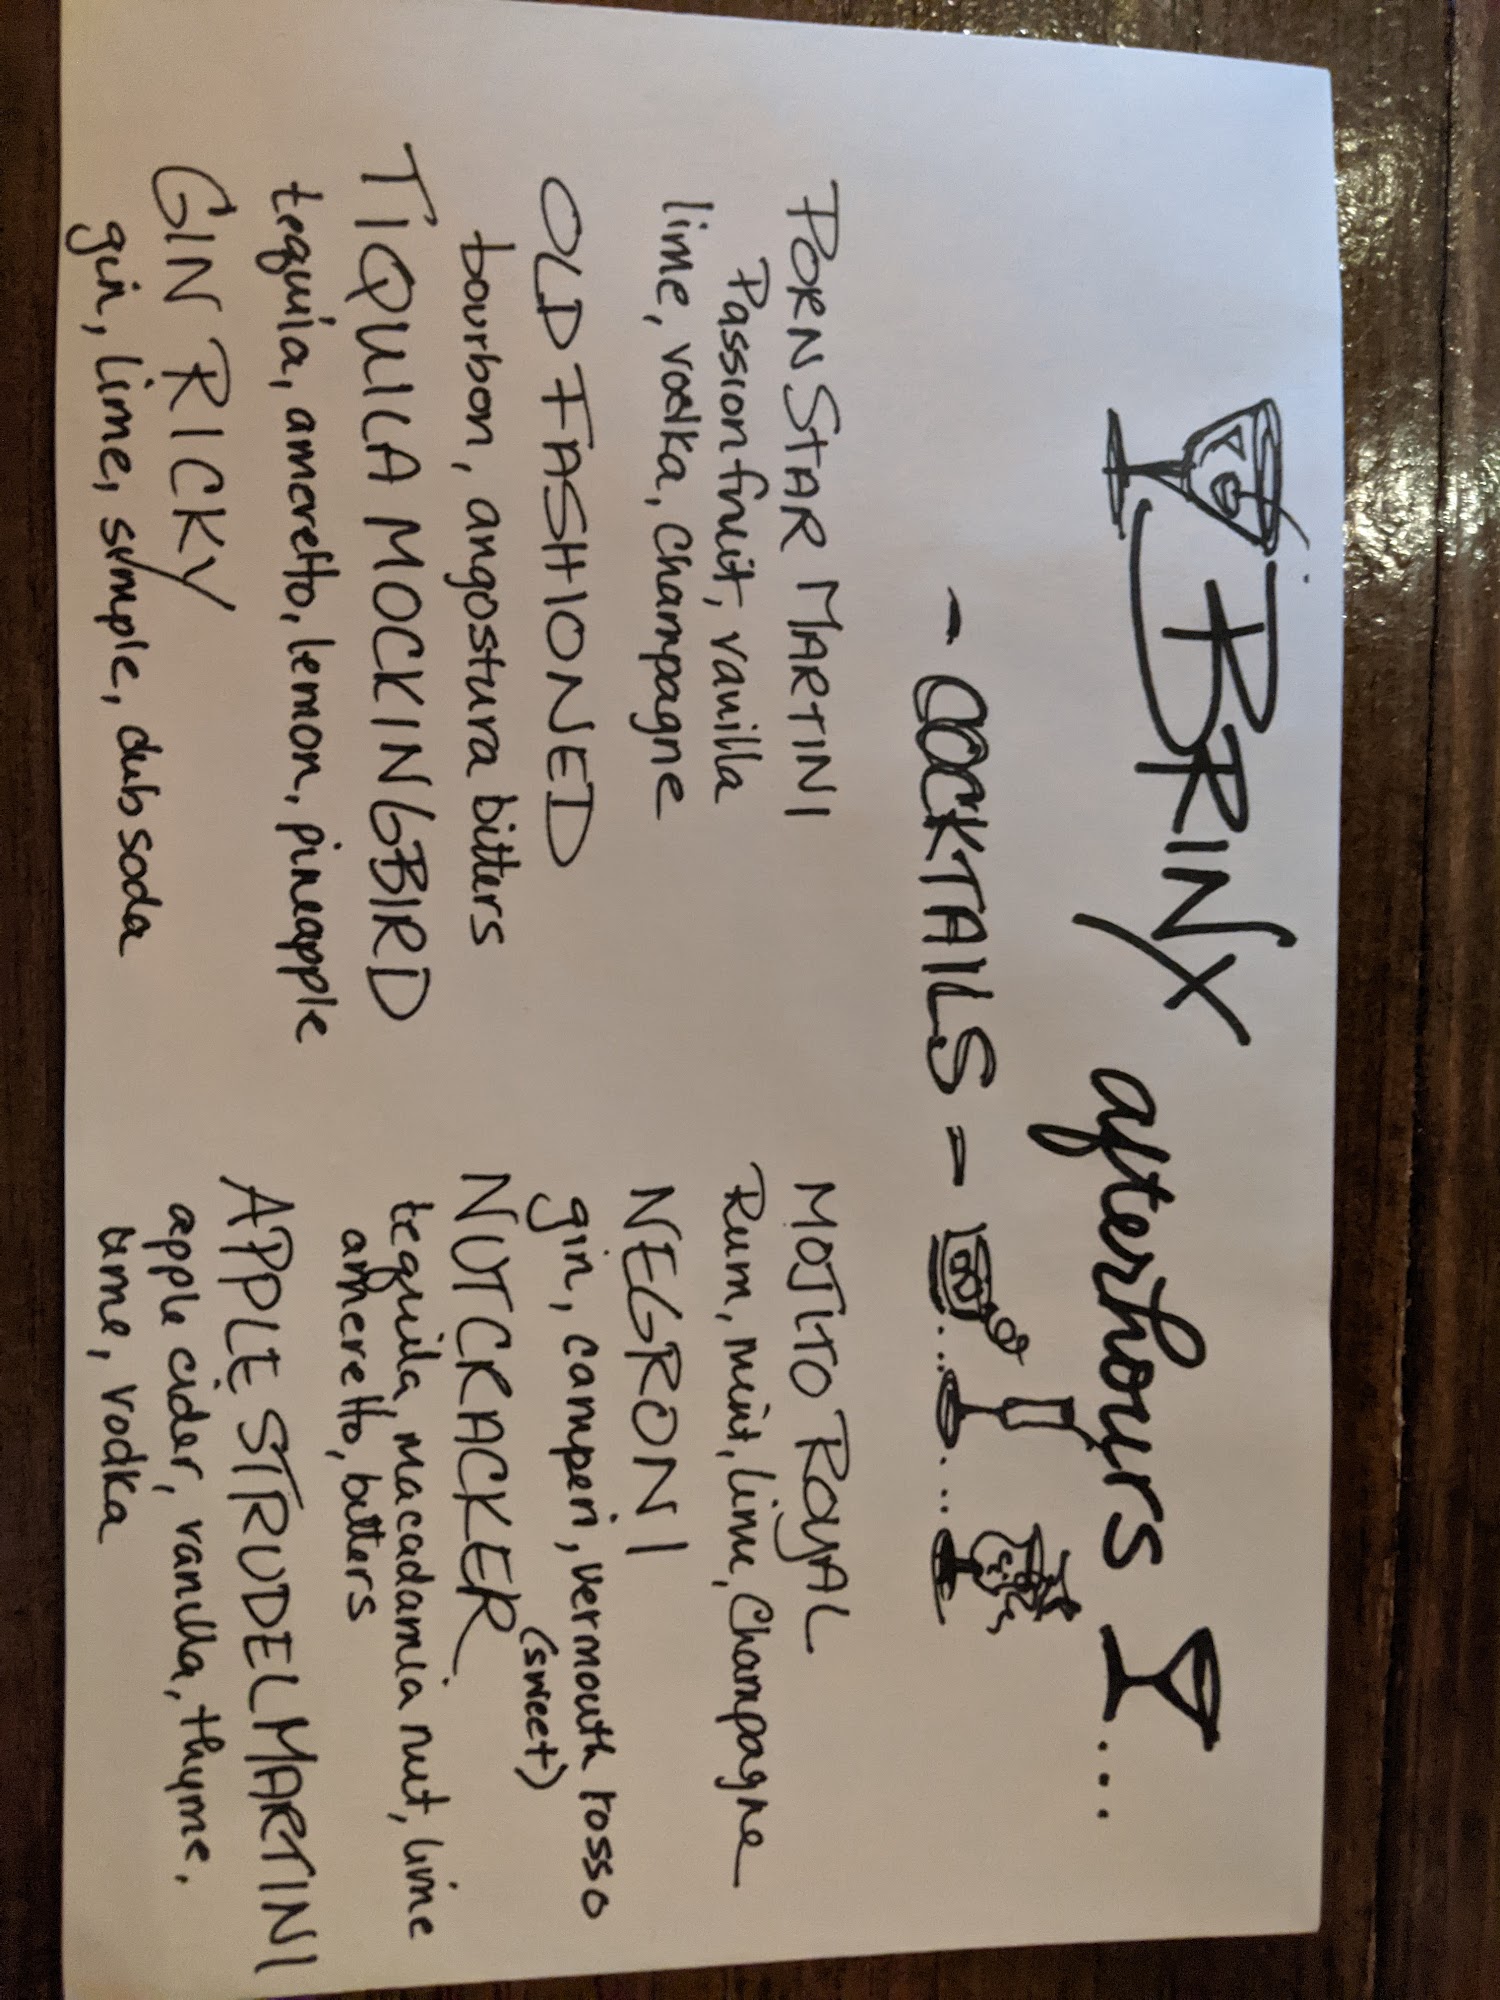 BRINX afterhours ...
- COCKTAILS -
PORN STAR MARTINI
Passionfruit, vanilla
lime, vodka, Champagne
OLD FASHIONED
bourbon, angostura bitters
TIQUILA MOCKINGBIRD
tequila, ameretto, lemon, pineapple
GIN RICKY
gin, lime, symple, dub soda
MOJITO ROYAL
Rum, mint, lime, Champagne
NEGRONI
gin, camperi, vermouth rosso
(sweet)
NUTCRACKER
tequila, macadamia nut, lime
ameretto, bitters
APPLE STRUDEL MARTINI
apple cider, vanilla, thyme,
lime, vodka